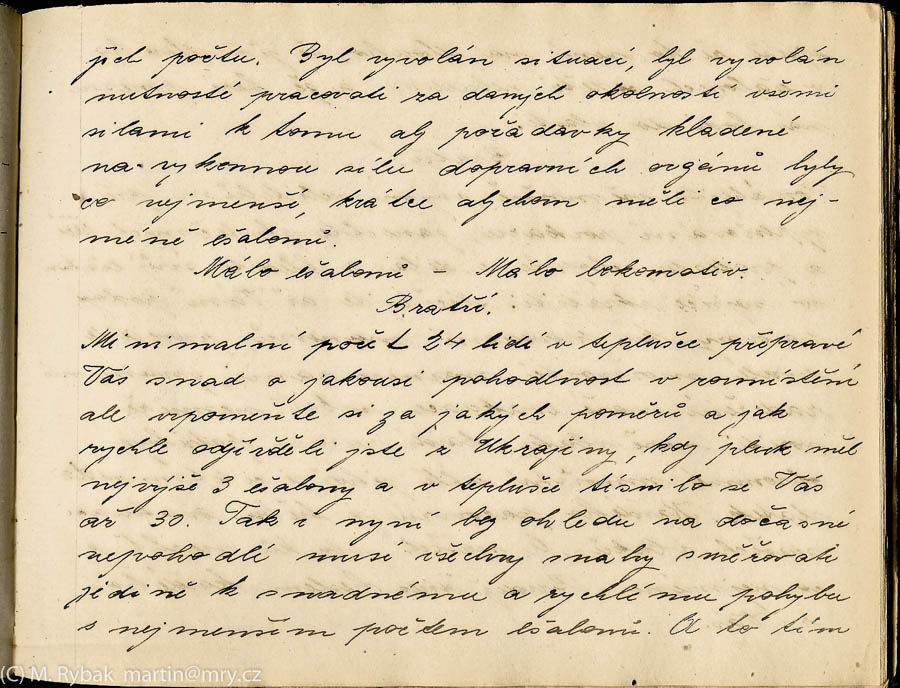 jich počtu. Byl vyvolán situací, byl vyvolán
nutností pracovati za daných okolností všemi
silami k tomu aby požadavky kladené
na výkonnou sílu dopravních orgánů byly
co nejmenší, krátce abychom měli co nej-
méně ešalonů.
Málo ešalonů – Málo lokomotiv.
Bratří.
Minimalní počet 24 lidí v teplušce připraví
Vás snad o jakousi pohodlnost v rozmístění
ale vzpomeňte si za jakých poměrů a jak
rychle odjížděli jste z Ukrajiny, kdy pluk měl
nejvýše 3 ešalony a v teplušce tísnilo se Vás
až 30. Tak i nyní bez ohledu na dočasné
nepohodlí musí všechny snahy směřovati
jedině k snadnému a rychlému pohybu
s nejmenším počtem ešalonů. A to tím
(C) M. Rybak martin@mry.cz